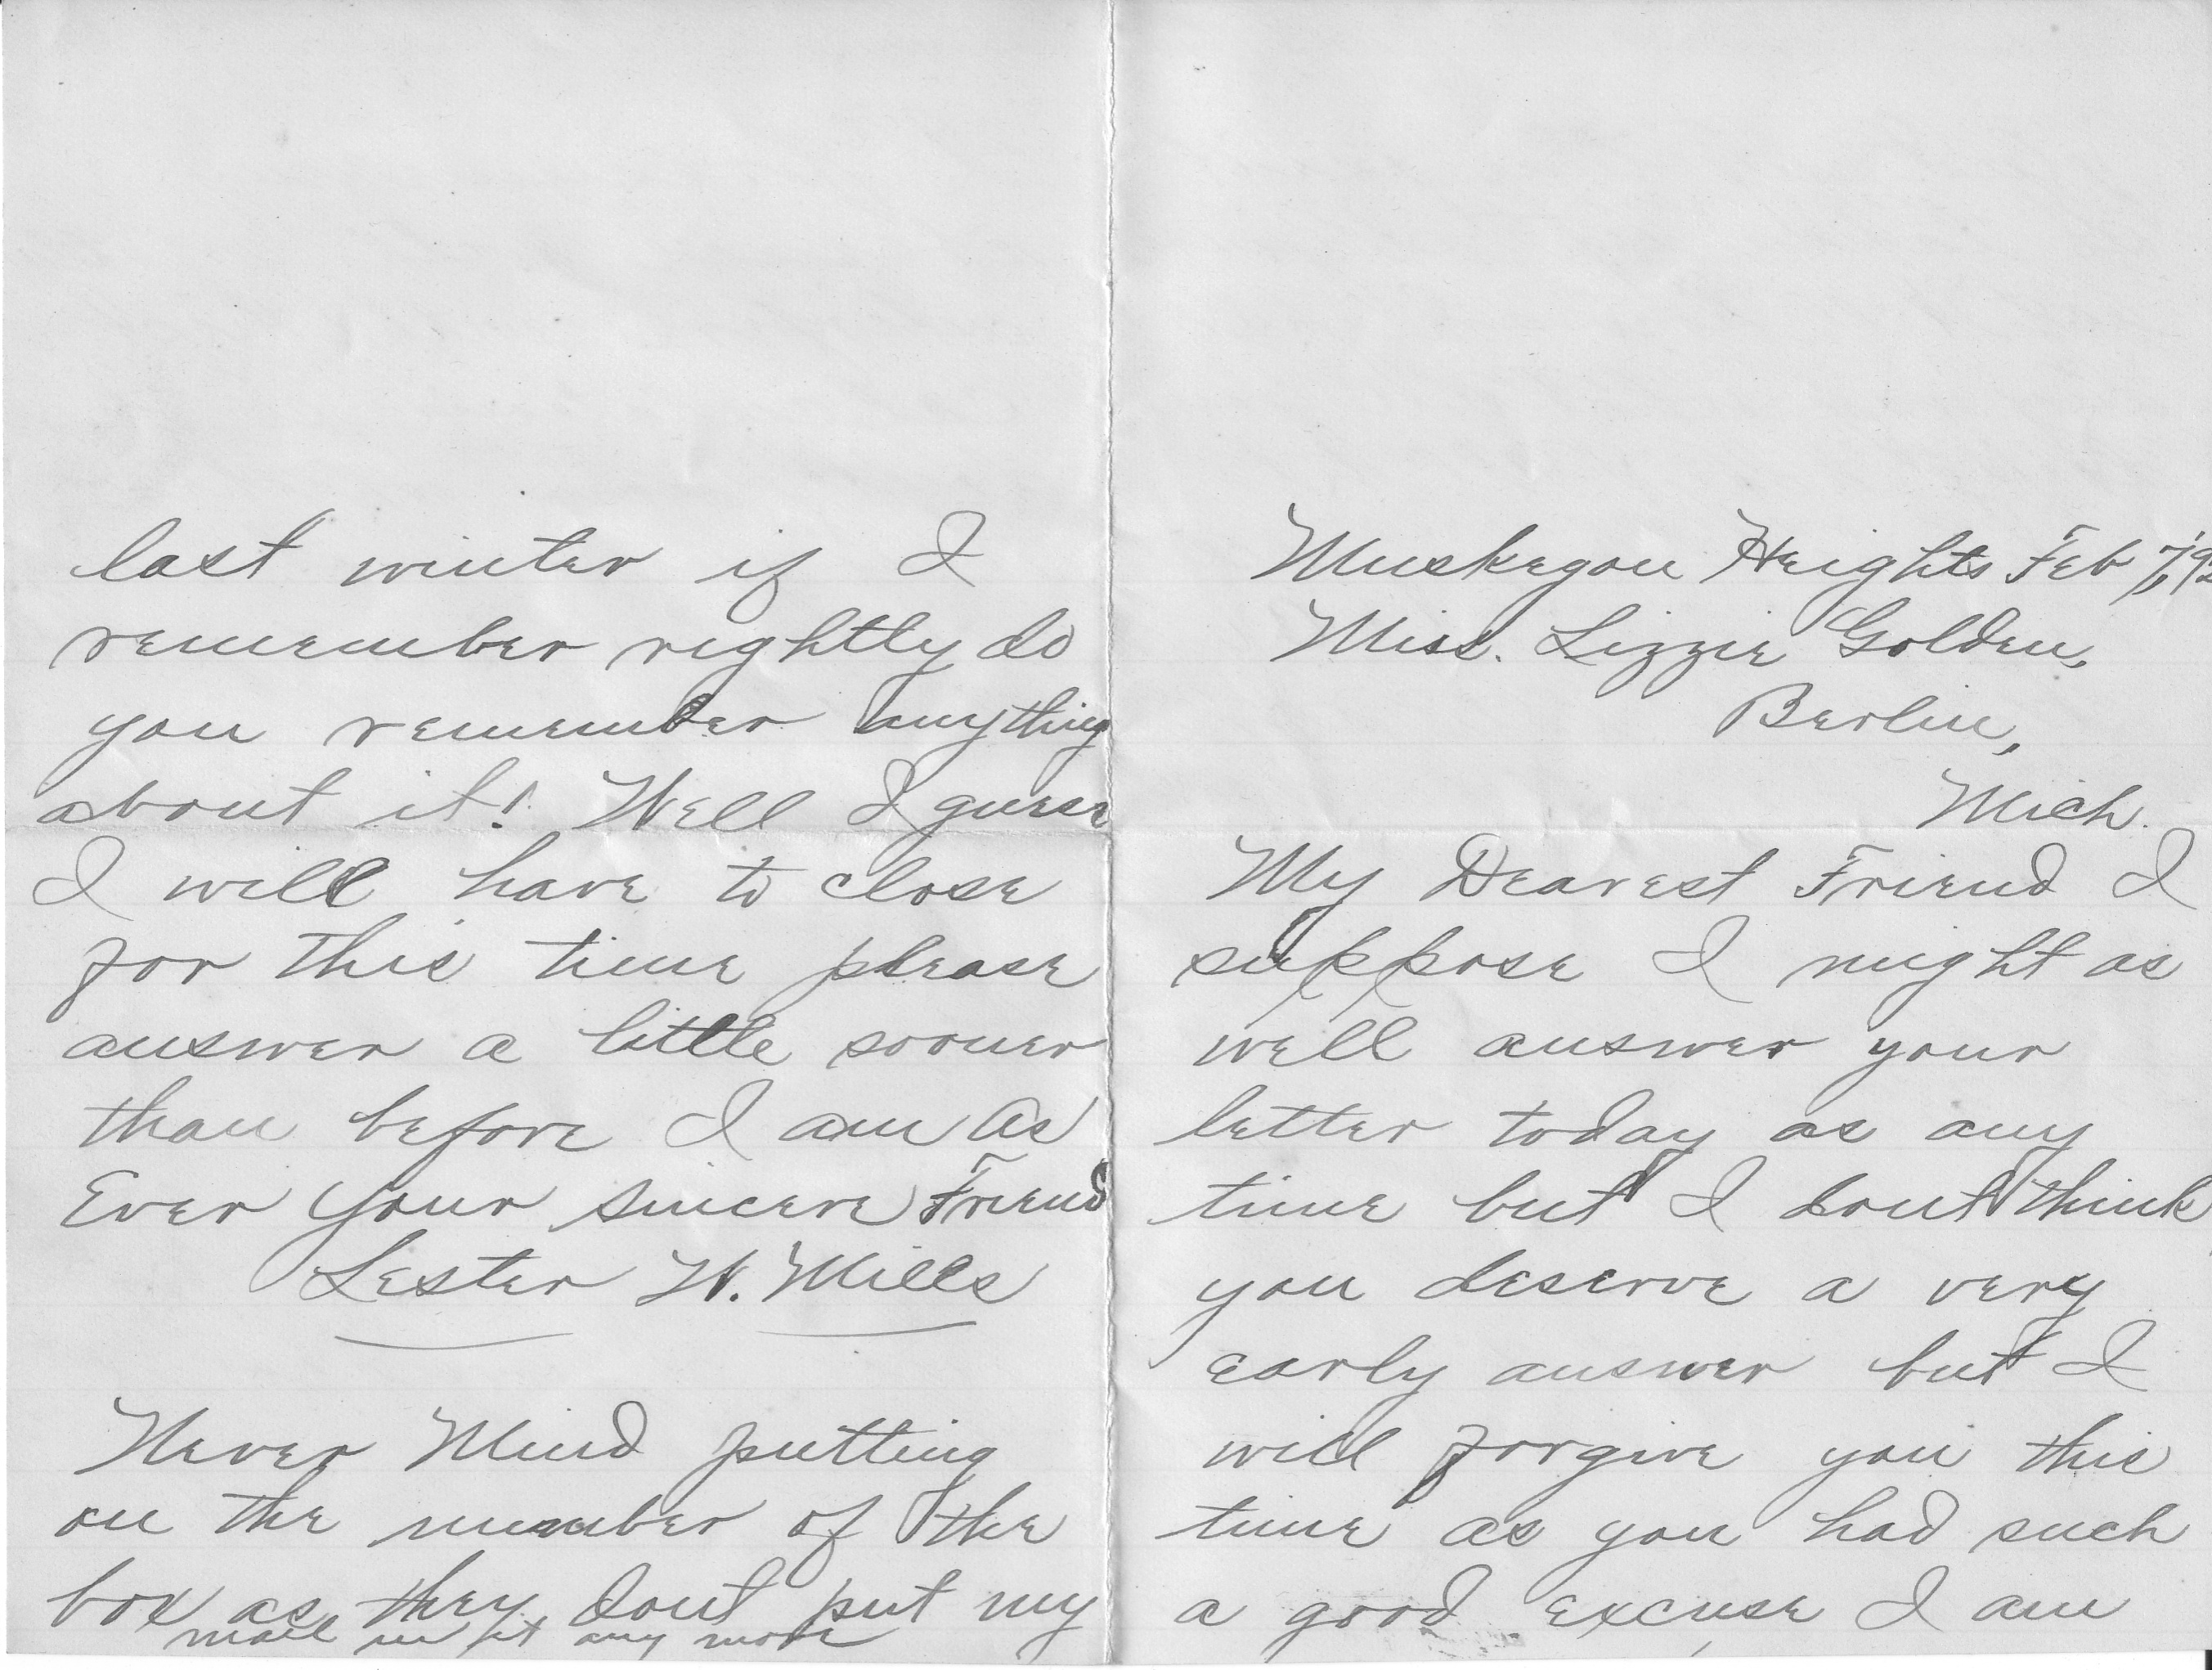 last winter if I
remember rightly do
you remember anything
about it! Well I guess
I will have to close
for this time please
answer a little sooner
than before I am As
Ever Your Sincere Friend
Lester W. Mills
Never Mind putting
on the number of the
box as they dont put my
mail in it any more
Muskegon Heights Feb 7, 92
Miss. Lizzie Golden,
Berlin,
Mich.
My Dearest Friend I
suppose I might as
well answer your
letter today as any
time but I dont think
you deserve a very
early answer but I
will forgive you this
time as you had such
a good excuse I am